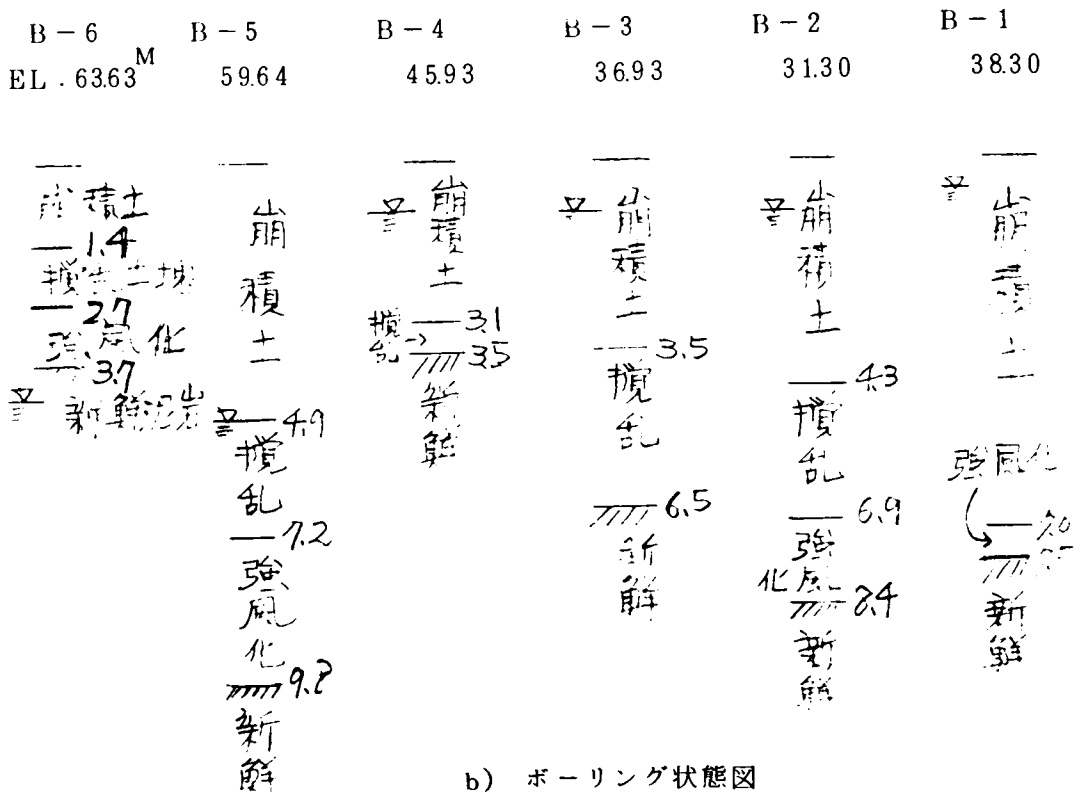 B-6 B-5 B-4 B-3 B-2 B-1
EL.63.63M 59.64 45.93 36.93 31.30 38.30
崩積土
1.4
2.7
強風化
3.7
新鮮泥岩
崩積土
4.9
攪乱
7.2
強風化
新鮮
崩積土
3.1
攪乱
3.5
新鮮
崩積土
3.5
攪乱
6.5
新鮮
崩積土
4.3
攪乱
6.9
強風化
8.4
新鮮
崩積土
強風化
新鮮
b) ボーリング状態図